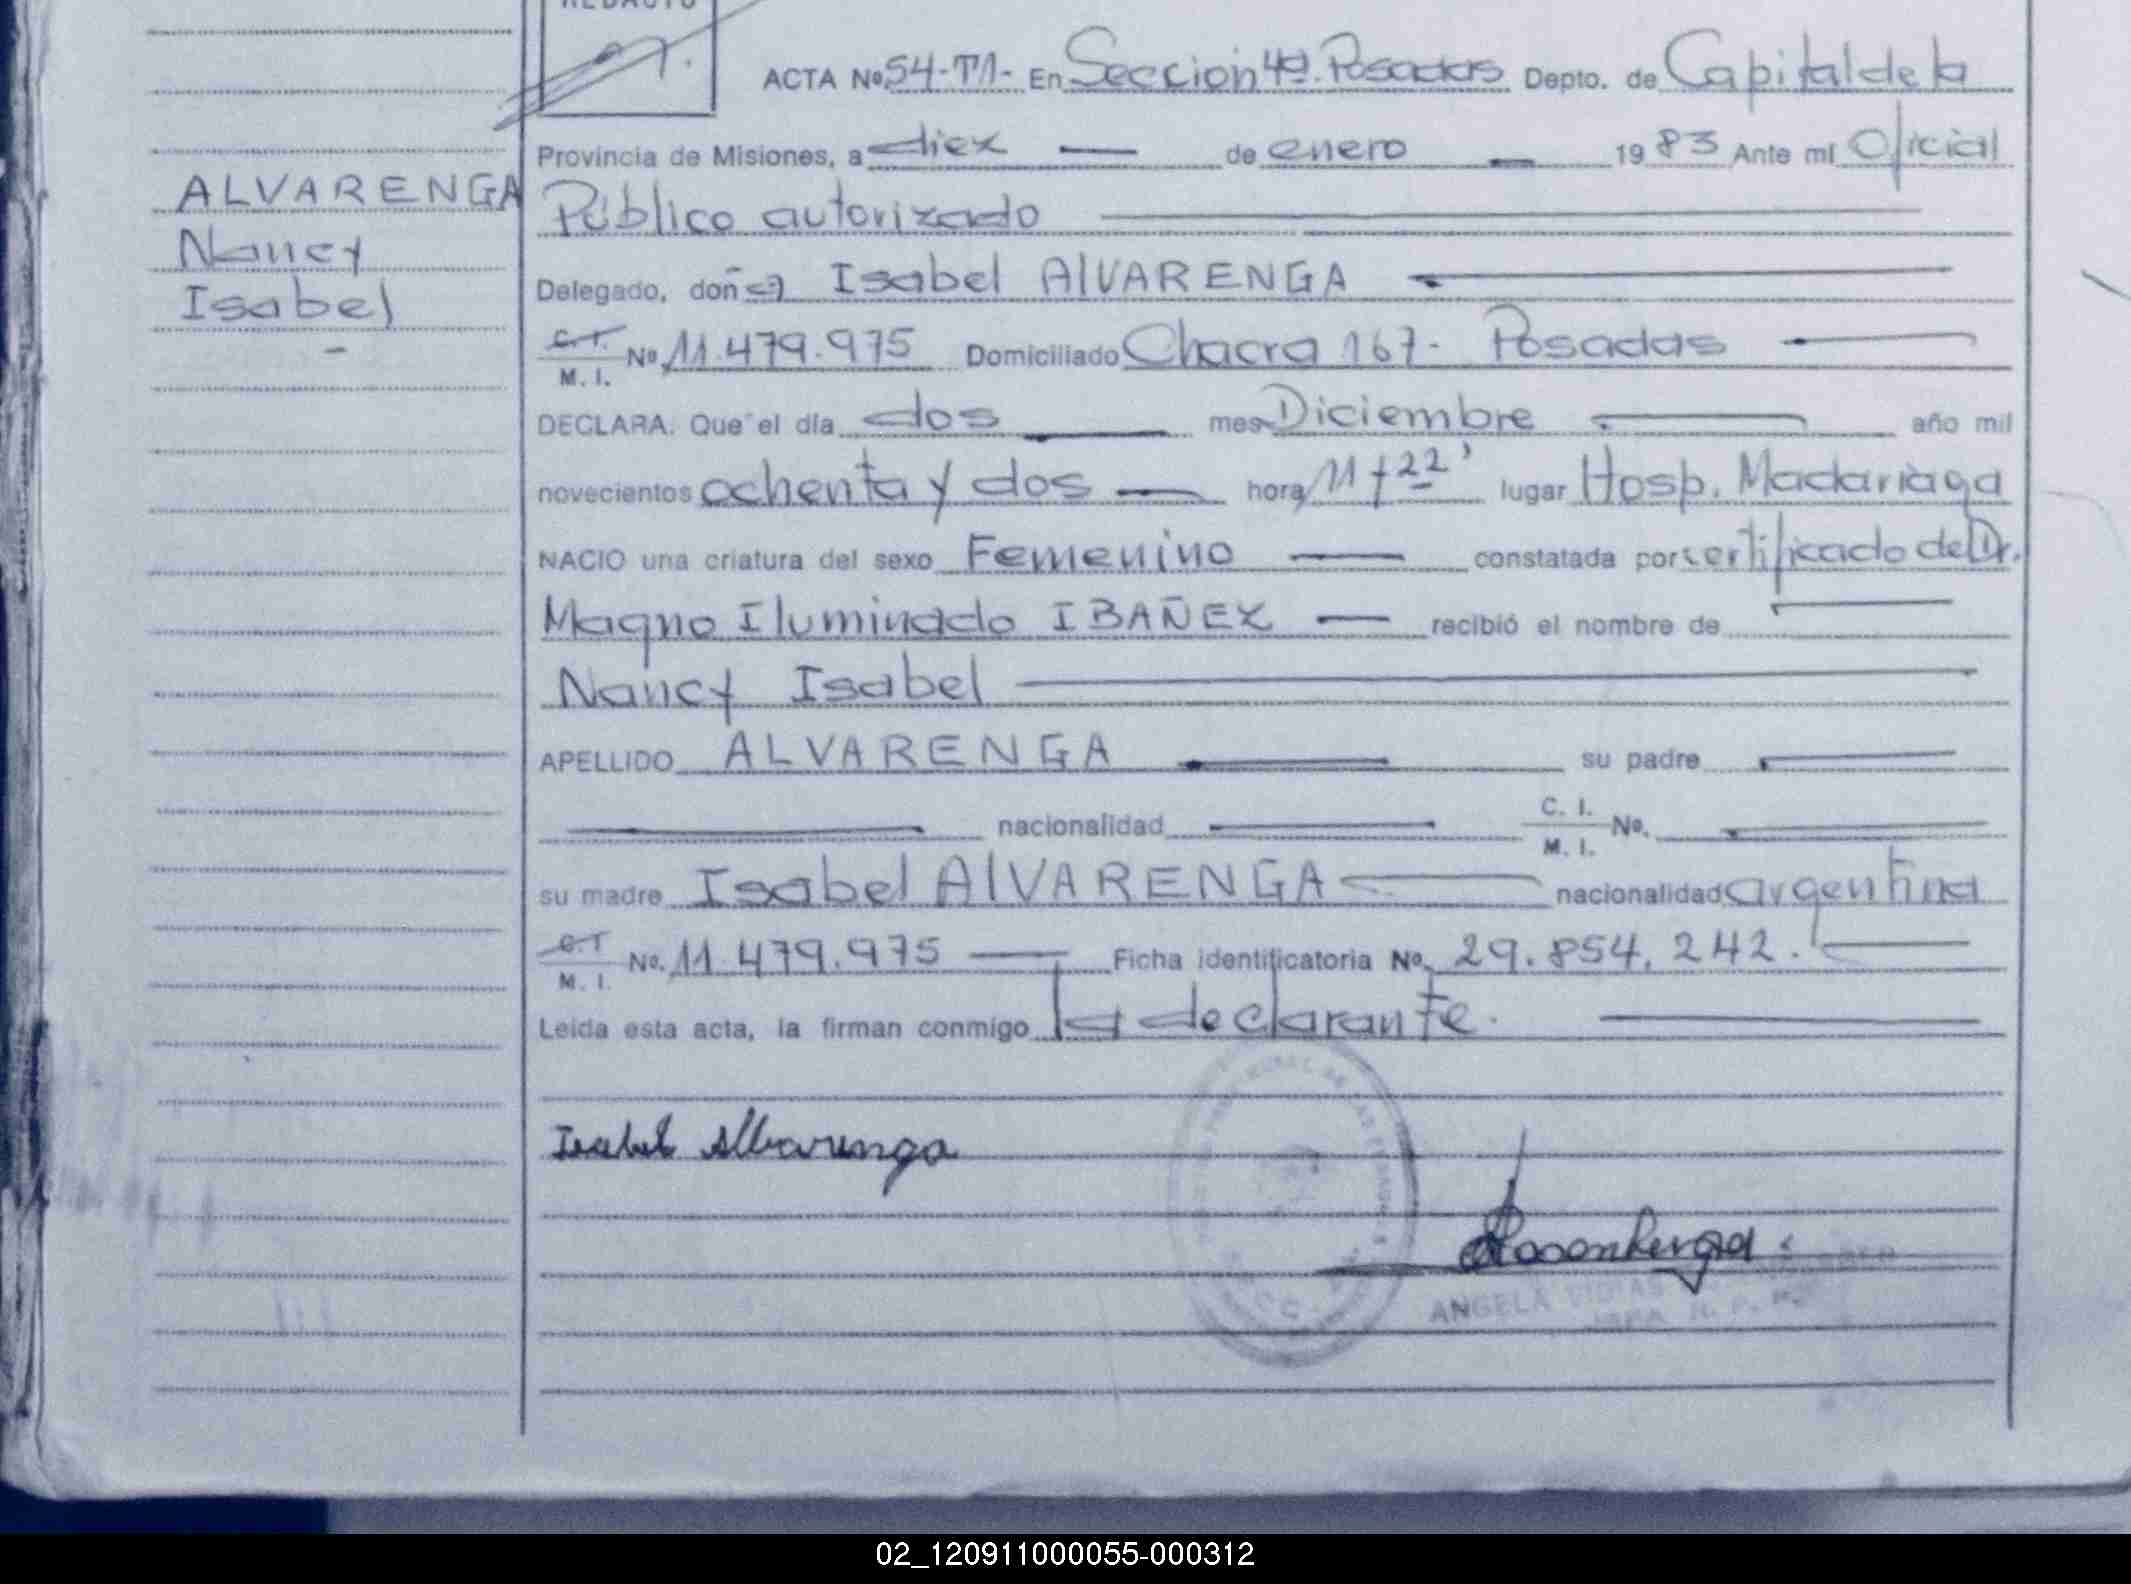 REDACTO
ACTA Nº 54-T1- En Sección 4ª. Posadas Depto. de Capital de la
Provincia de Misiones, a diez — de enero — 1983 Ante mí Oficial
Público autorizado
ALVARENGA
Nancy
Isabel
Delegado, doña Isabel AlVARENGA
C.I. M. I. Nº 11.479.975 Domiciliado Chacra 167- Posadas
DECLARA: Que el día dos mes Diciembre año mil
novecientos ochenta y dos — hora 11 y 22' lugar Hosp. Madariaga
NACIO una criatura del sexo Femenino — constatada por certificado del Dr.
Magno Iluminado IBAÑEZ — recibió el nombre de
Nancy Isabel
APELLIDO ALVARENGA su padre
nacionalidad C. I. M. I. Nº.
su madre Isabel AlVARENGA nacionalidad argentina
C.I. M. I. Nº. 11.479.975 — Ficha identificatoria Nº. 29.854.242.
Leída esta acta, la firman conmigo la declarante.
Isabel Alvarenga
ANGELA
02_120911000055-000312